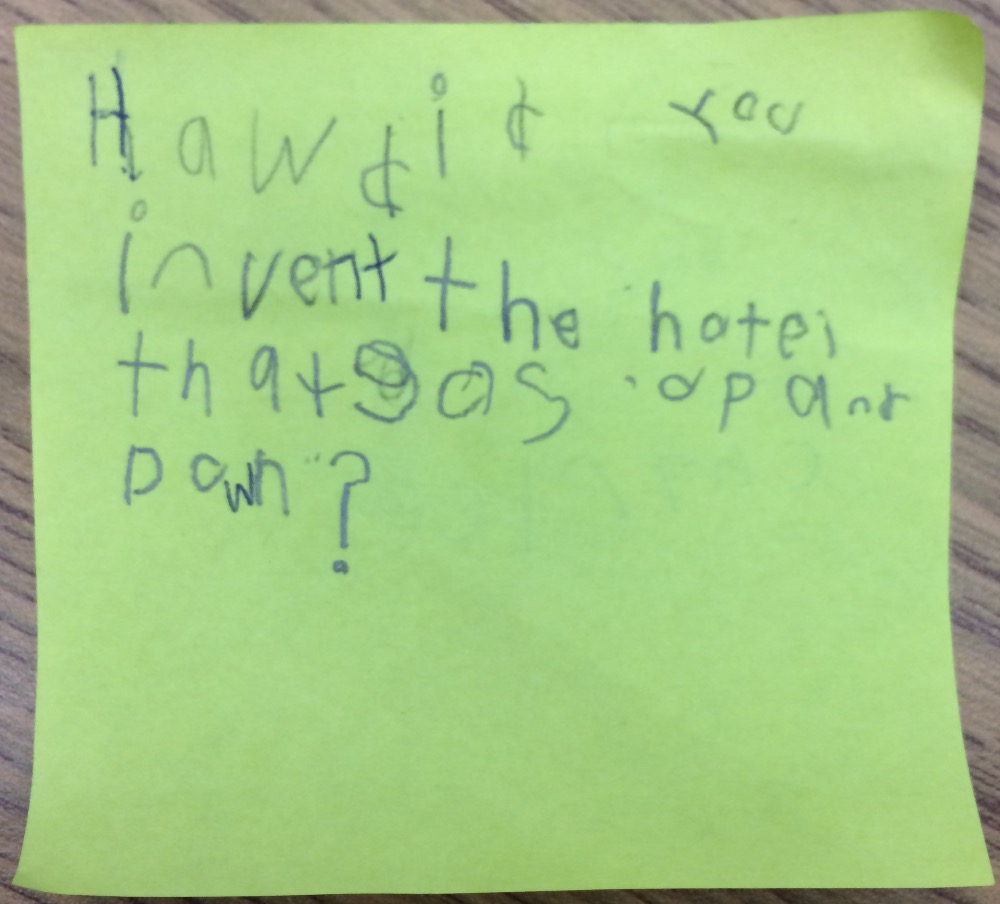 Haw did you
invent the hotel
that gos op anr
Down?